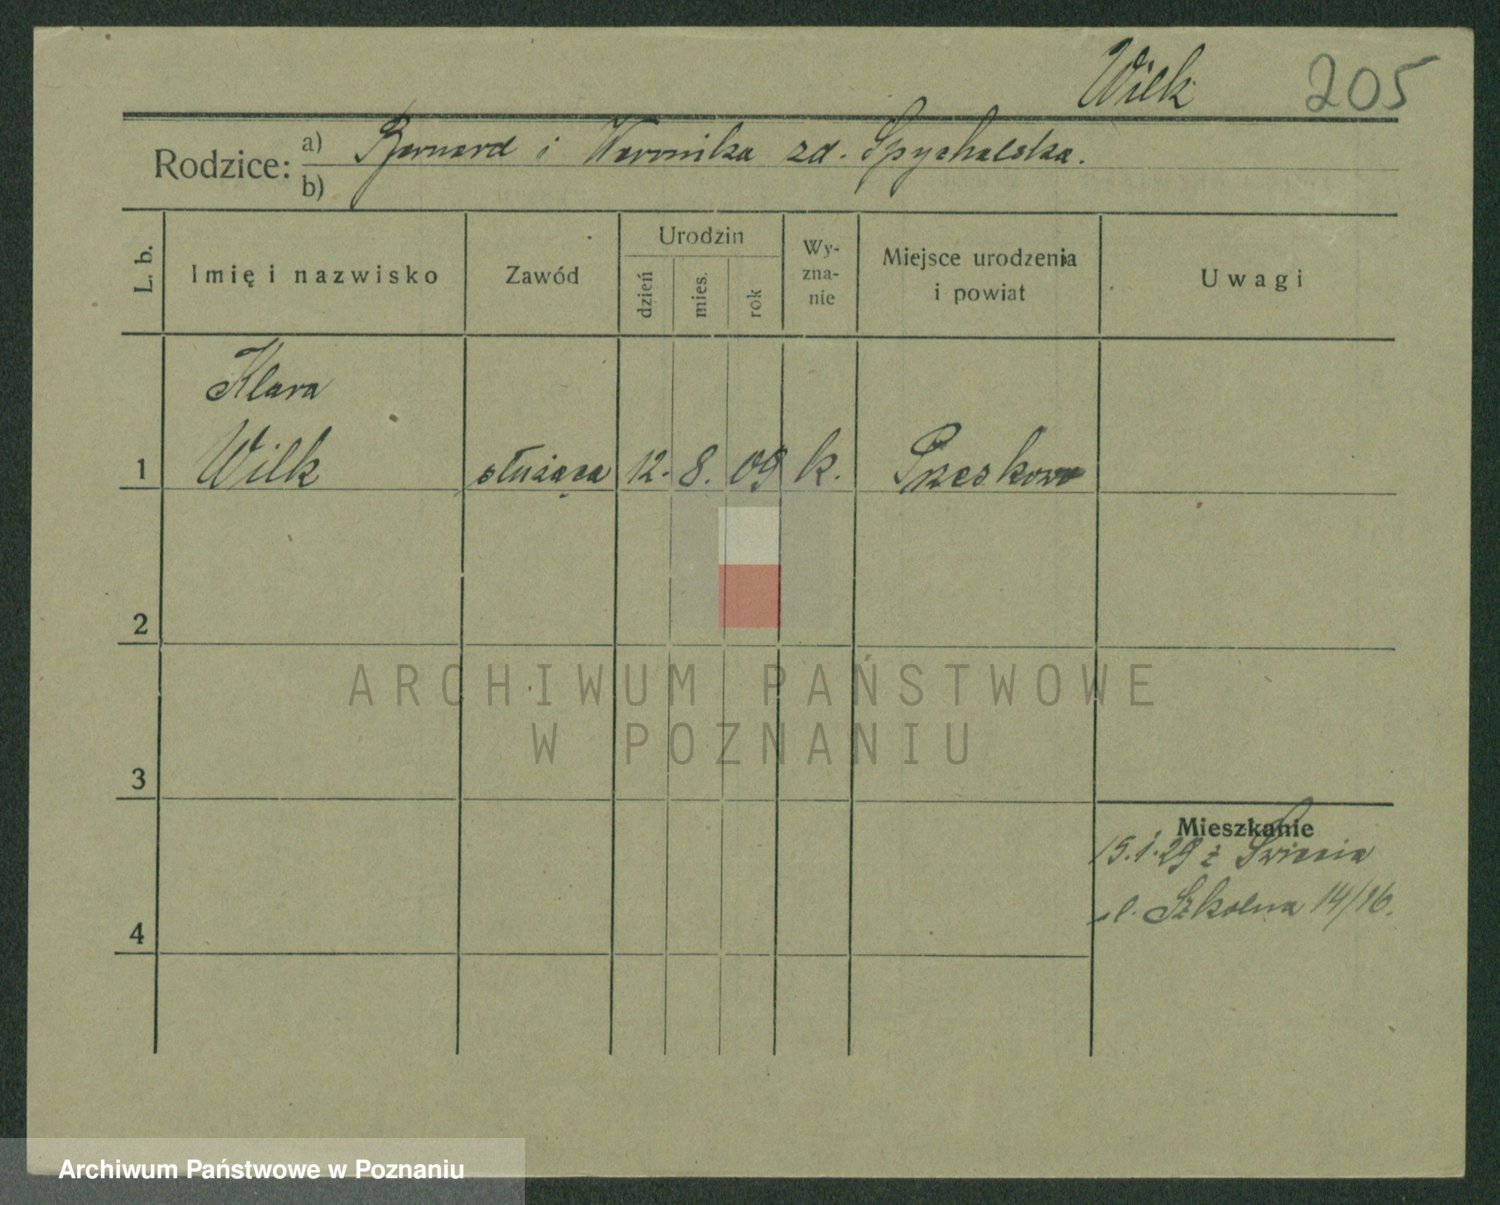 Wilk 205
Rodzice: a) Bernard i Weronika zd. Spychalska.
b)
L. b. Imię i nazwisko Zawód Urodzin dzień mies. rok Wy-zna-nie Miejsce urodzenia i powiat Uwagi
Klara
1 Wilk służąca 12. 8. 09 k.
2
ARCHIWUM PAŃSTWOWE
W POZNANIU
3
Mieszkanie
15.1.29 z Świecia
ul. Szkolna 14/16.
4
Archiwum Państwowe w Poznaniu